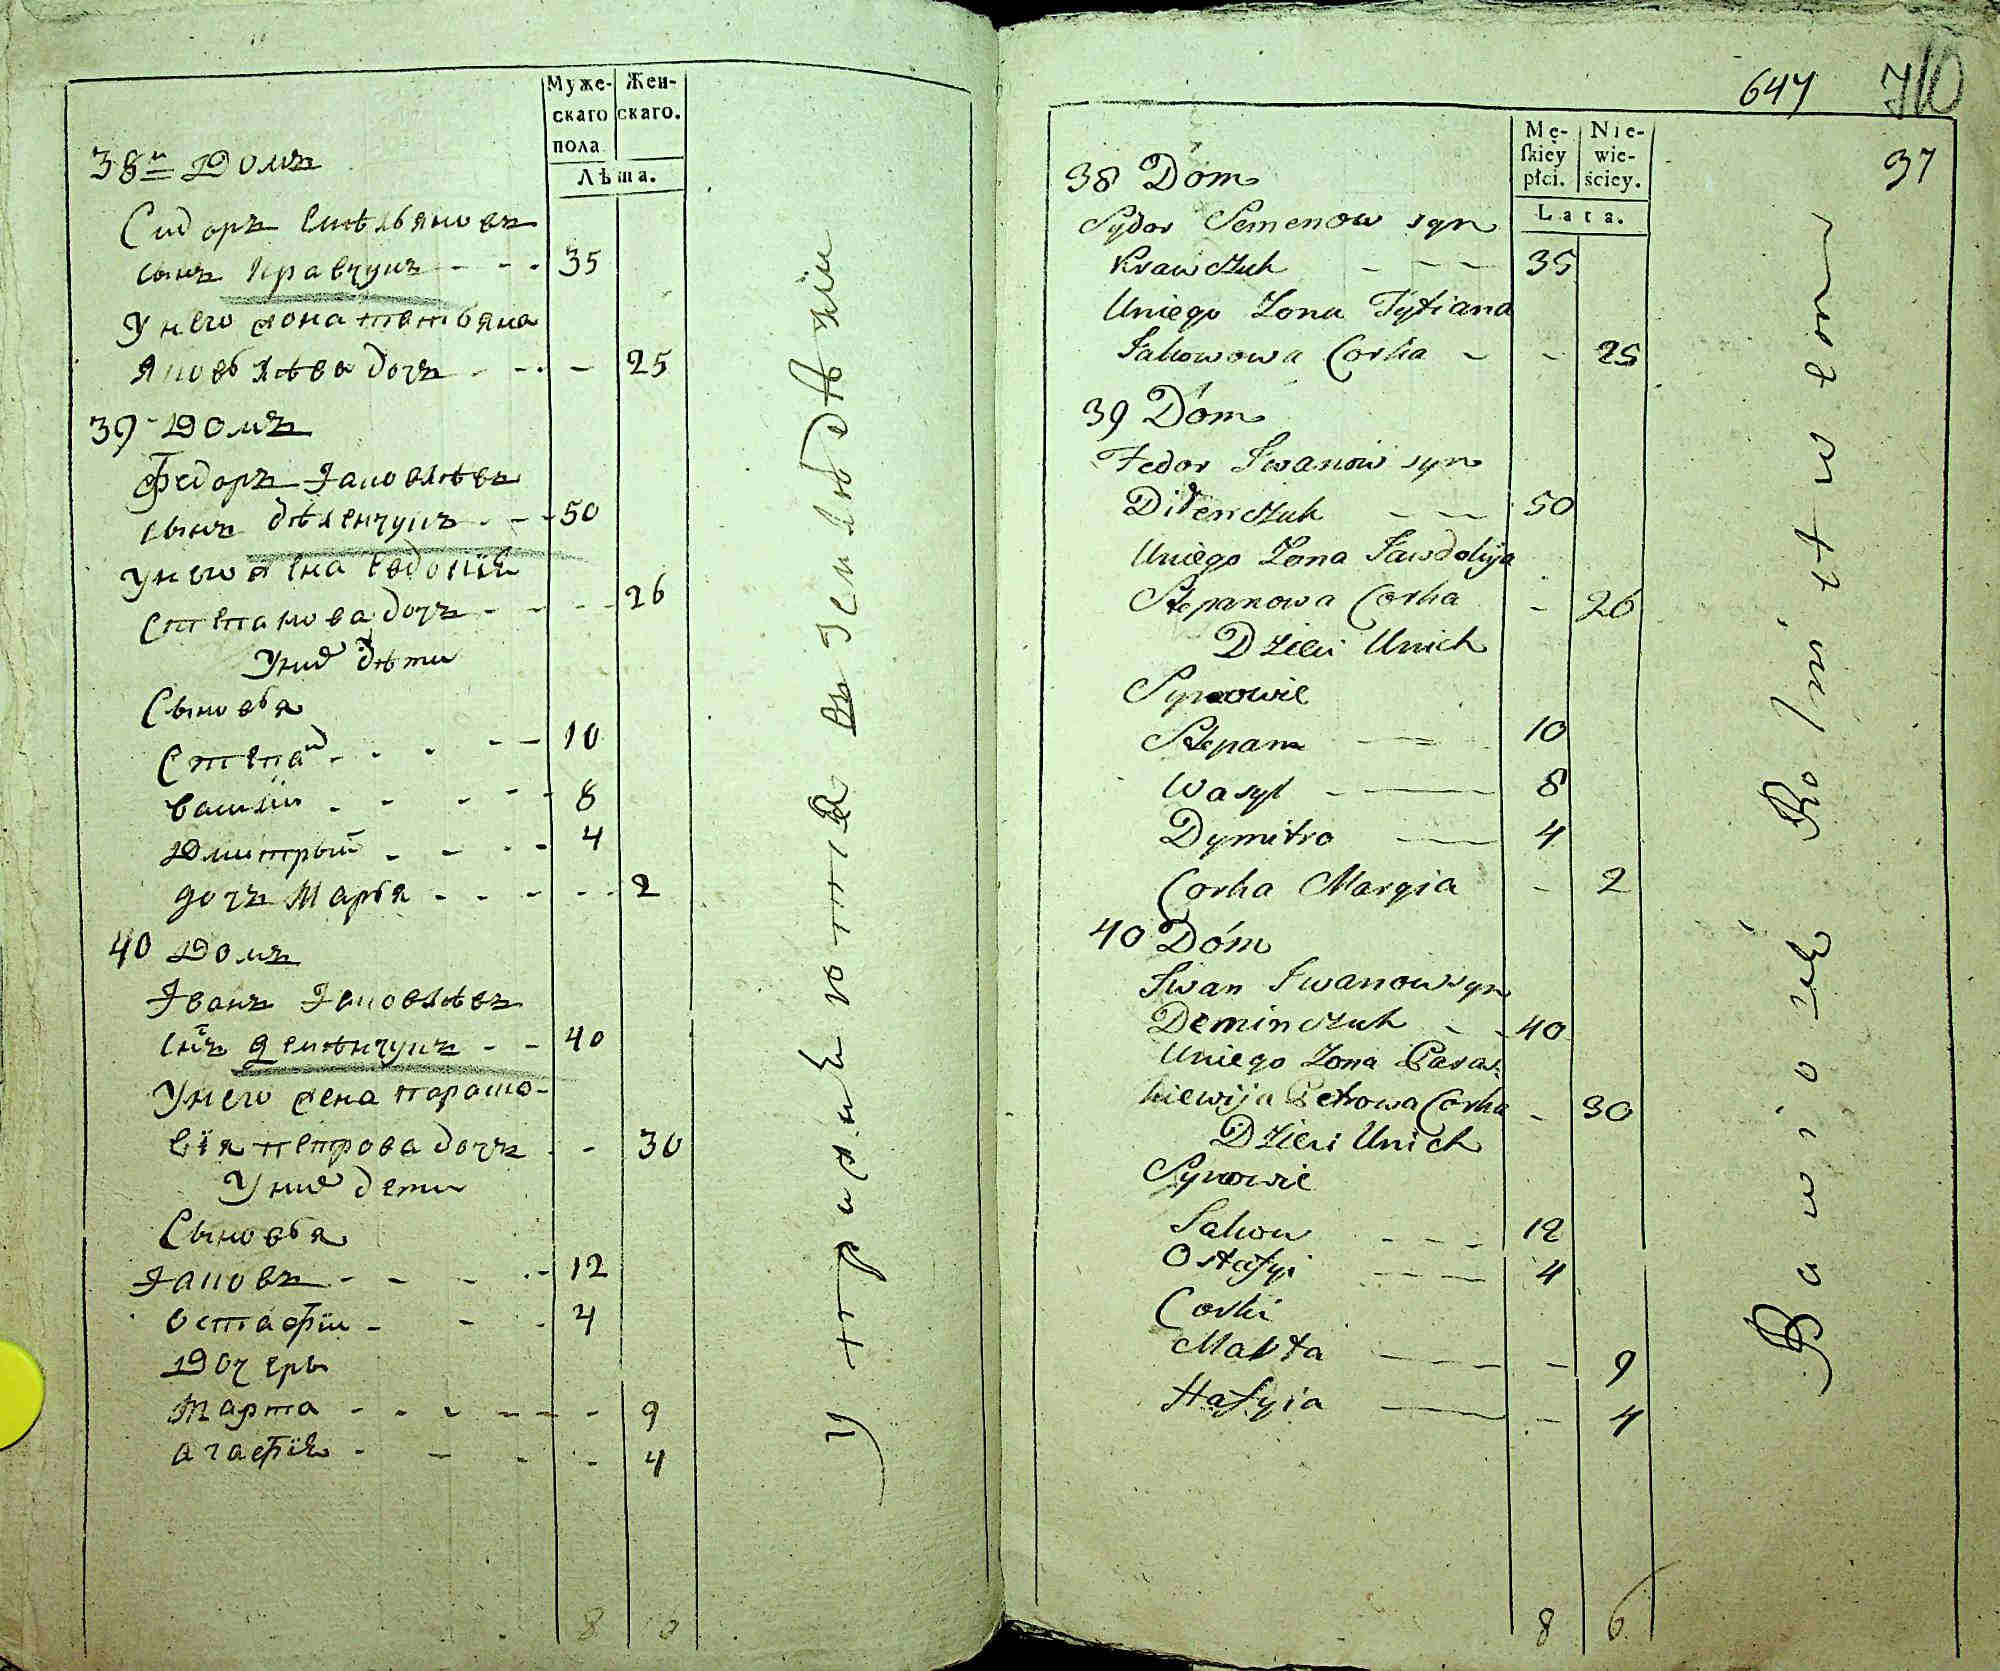 Муже-
скаго
пола
Жен-
скаго.
Лѣта.
38 Домъ
Сидоръ Емѣльяновъ
сынъ Кравчукъ - - - 35
У него жона татьяна
Яковлѣва дочъ - - - 25
39 Домъ
Федоръ Яковлѣвъ
сынъ - - - 50
У него жена Евдокiя
Степанова дочъ - - - 26
У них дѣти
Сыновья
Степан - - - 10
Василiй - - - 8
Дмитрый - - - 4
дочъ Марья - - - 2
40 Домъ
Iванъ Яковлѣвъ
снъ Демѣнчукъ - - 40
У него жена параско-
вiя петрова дочъ - - 30
У них дети
Сыновья
Яковъ - - - 12
Остафiй - - - 4
Дочери
Марта - - - 9
Агафiя - - - 4
8 6
упражняются въ земледѣлiи
647 710
37
Mę-
skiey
płci.
Nie-
wie-
ściey.
Lata.
38 Dom
Sydor Semenow syn
Krawczuk - - - 35
Uniego Zona Tytiana
Jakowowa Corka - - 25
39 Dóm
Fedor Iwanow syn
Didenczuk - - - 50
Uniego Zona Jawdokija
Stepanowa Corka - 26
Dzieci Unich
Synowie
Stepan - - - 10
Wasyl - - 8
Dymitro - 4
Corka Maryia - 2
40 Dóm
Iwan Iwanow syn
Deminczuk - - 40
Uniego Zona Paras-
kiewija Petrowa Corka - 30
Dzieci Unich
Synowie
Jakow - - - 12
Ostafyi - - - 4
Corki
Marta - - - 9
Hafyia - - 4
8 6
Bawią się Rolnictwem